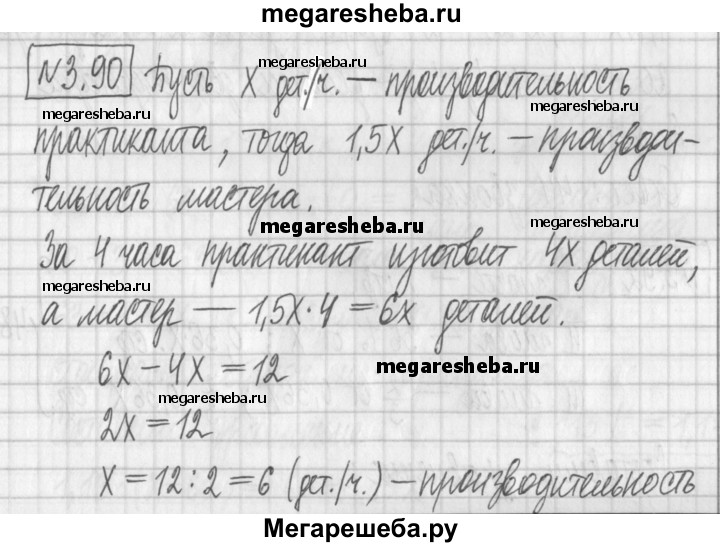 megaresheba.ru
№3.90 Пусть х дет./ч. — производительность
megaresheba.ru
megaresheba.ru
практиканта, тогда 1,5х дет./ч. — производи-
megaresheba.ru
тельность мастера.
megaresheba.ru
megaresheba.ru
За 4 часа практикант изготовит 4х деталей,
megaresheba.ru
а мастер — 1,5х·4=6х деталей.
6х–4х=12
megaresheba.ru
megaresheba.ru
2х=12
х=12:2=6 (дет./ч.) — производительность
Мегарешеба.ру